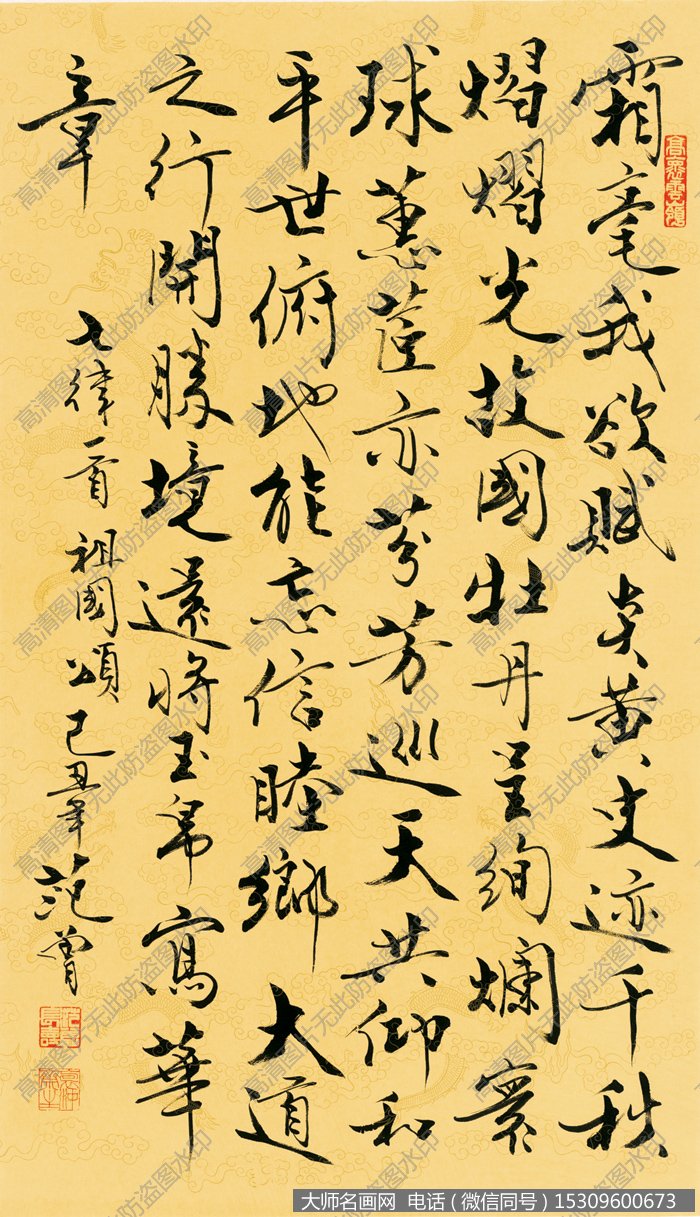 霜毫我欲賦炎黄史迹千秋
熠熠光故國牡丹呈絢爛寰
球蕙茞亦芬芳巡天共仰和
平世俯地能忘信睦鄉大道
之行開勝境還將玉帛寫華
章
七律一首祖國頌己丑年范曾
高清图片无此防盗图水印
大师名画网 电话（微信同号）15309600673